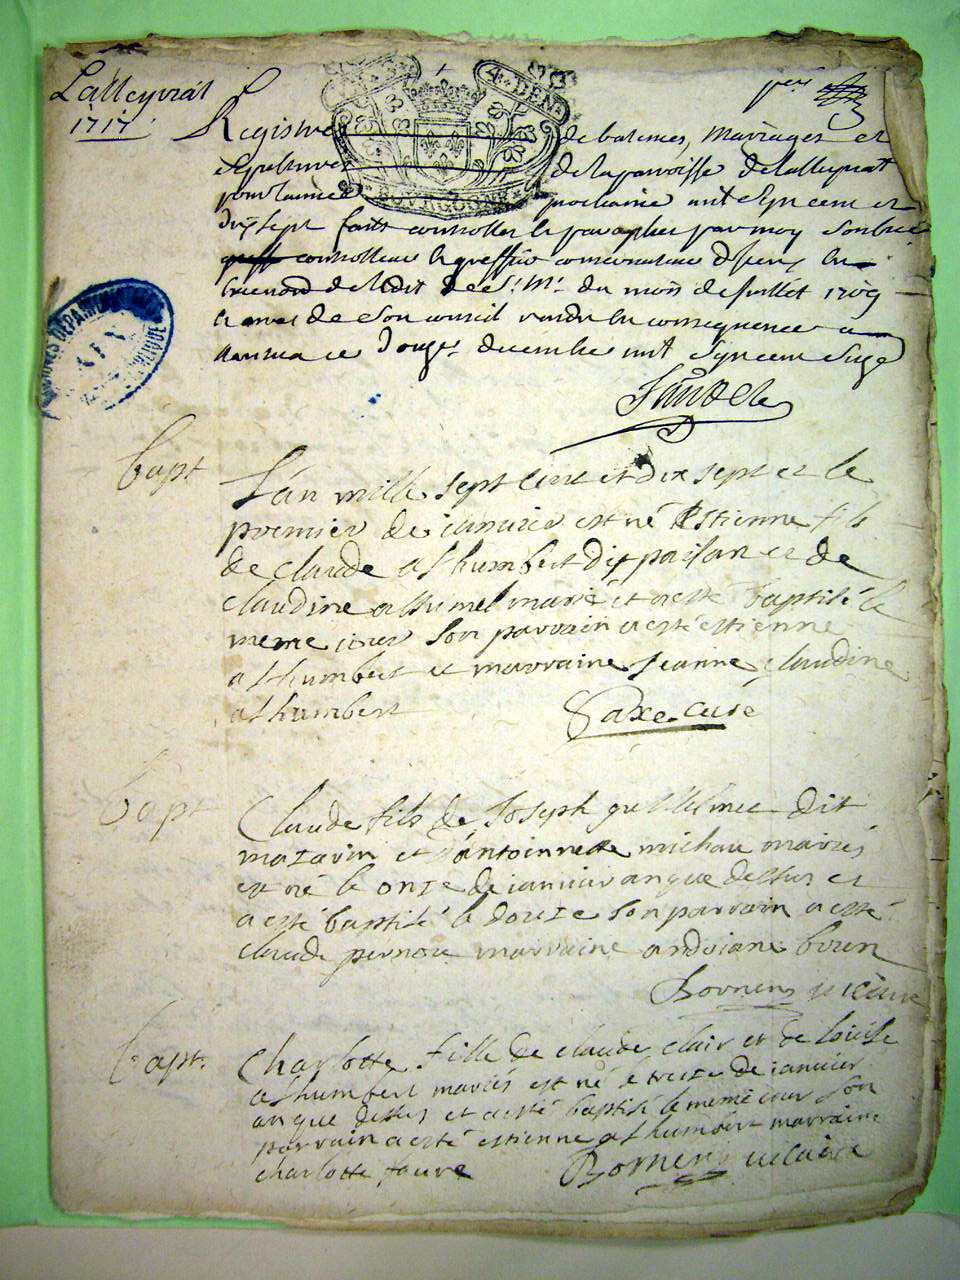 Lalleyriat
1717
Registre de batemes, Mariages et
Sepultures de la paroisse de Lalleyriat
pour l'année prochaine mil sept cent et
dix sept controller et parapher par moy
controlleur
de l'edit de S. M. du mois de Juillet 1709
et arrest de son conseil rendu en consequence a
Nantua ce douze decembre mil sept cent seize
4 DEN
BOURGOGNE
bapt
L'an mille sept cent et dix sept et le
premier de ianvier est né Estienne fils
de claude alhumbert dit paisan et de
claudine marié et a esté baptisé le
meme iour son parrain a esté estienne
alhumbert et marraine Jeanne claudine
alhumbert
curé
bapt
Claude fils de Joseph dit
mazarin et d'antoinette michau mariés
est né le onze de ianvier an que dessus et
a esté baptisé le douze son parrain a esté
claude marraine andriane
Bornens vicaire
bapt.
Charlotte fille de claude clair et de louise
alhumbert mariés est né le treize de ianvier
an que dessus et a esté baptisé le meme iour son
parrain a esté estienne alhumbert marraine
charlotte favre Bornens vicaire